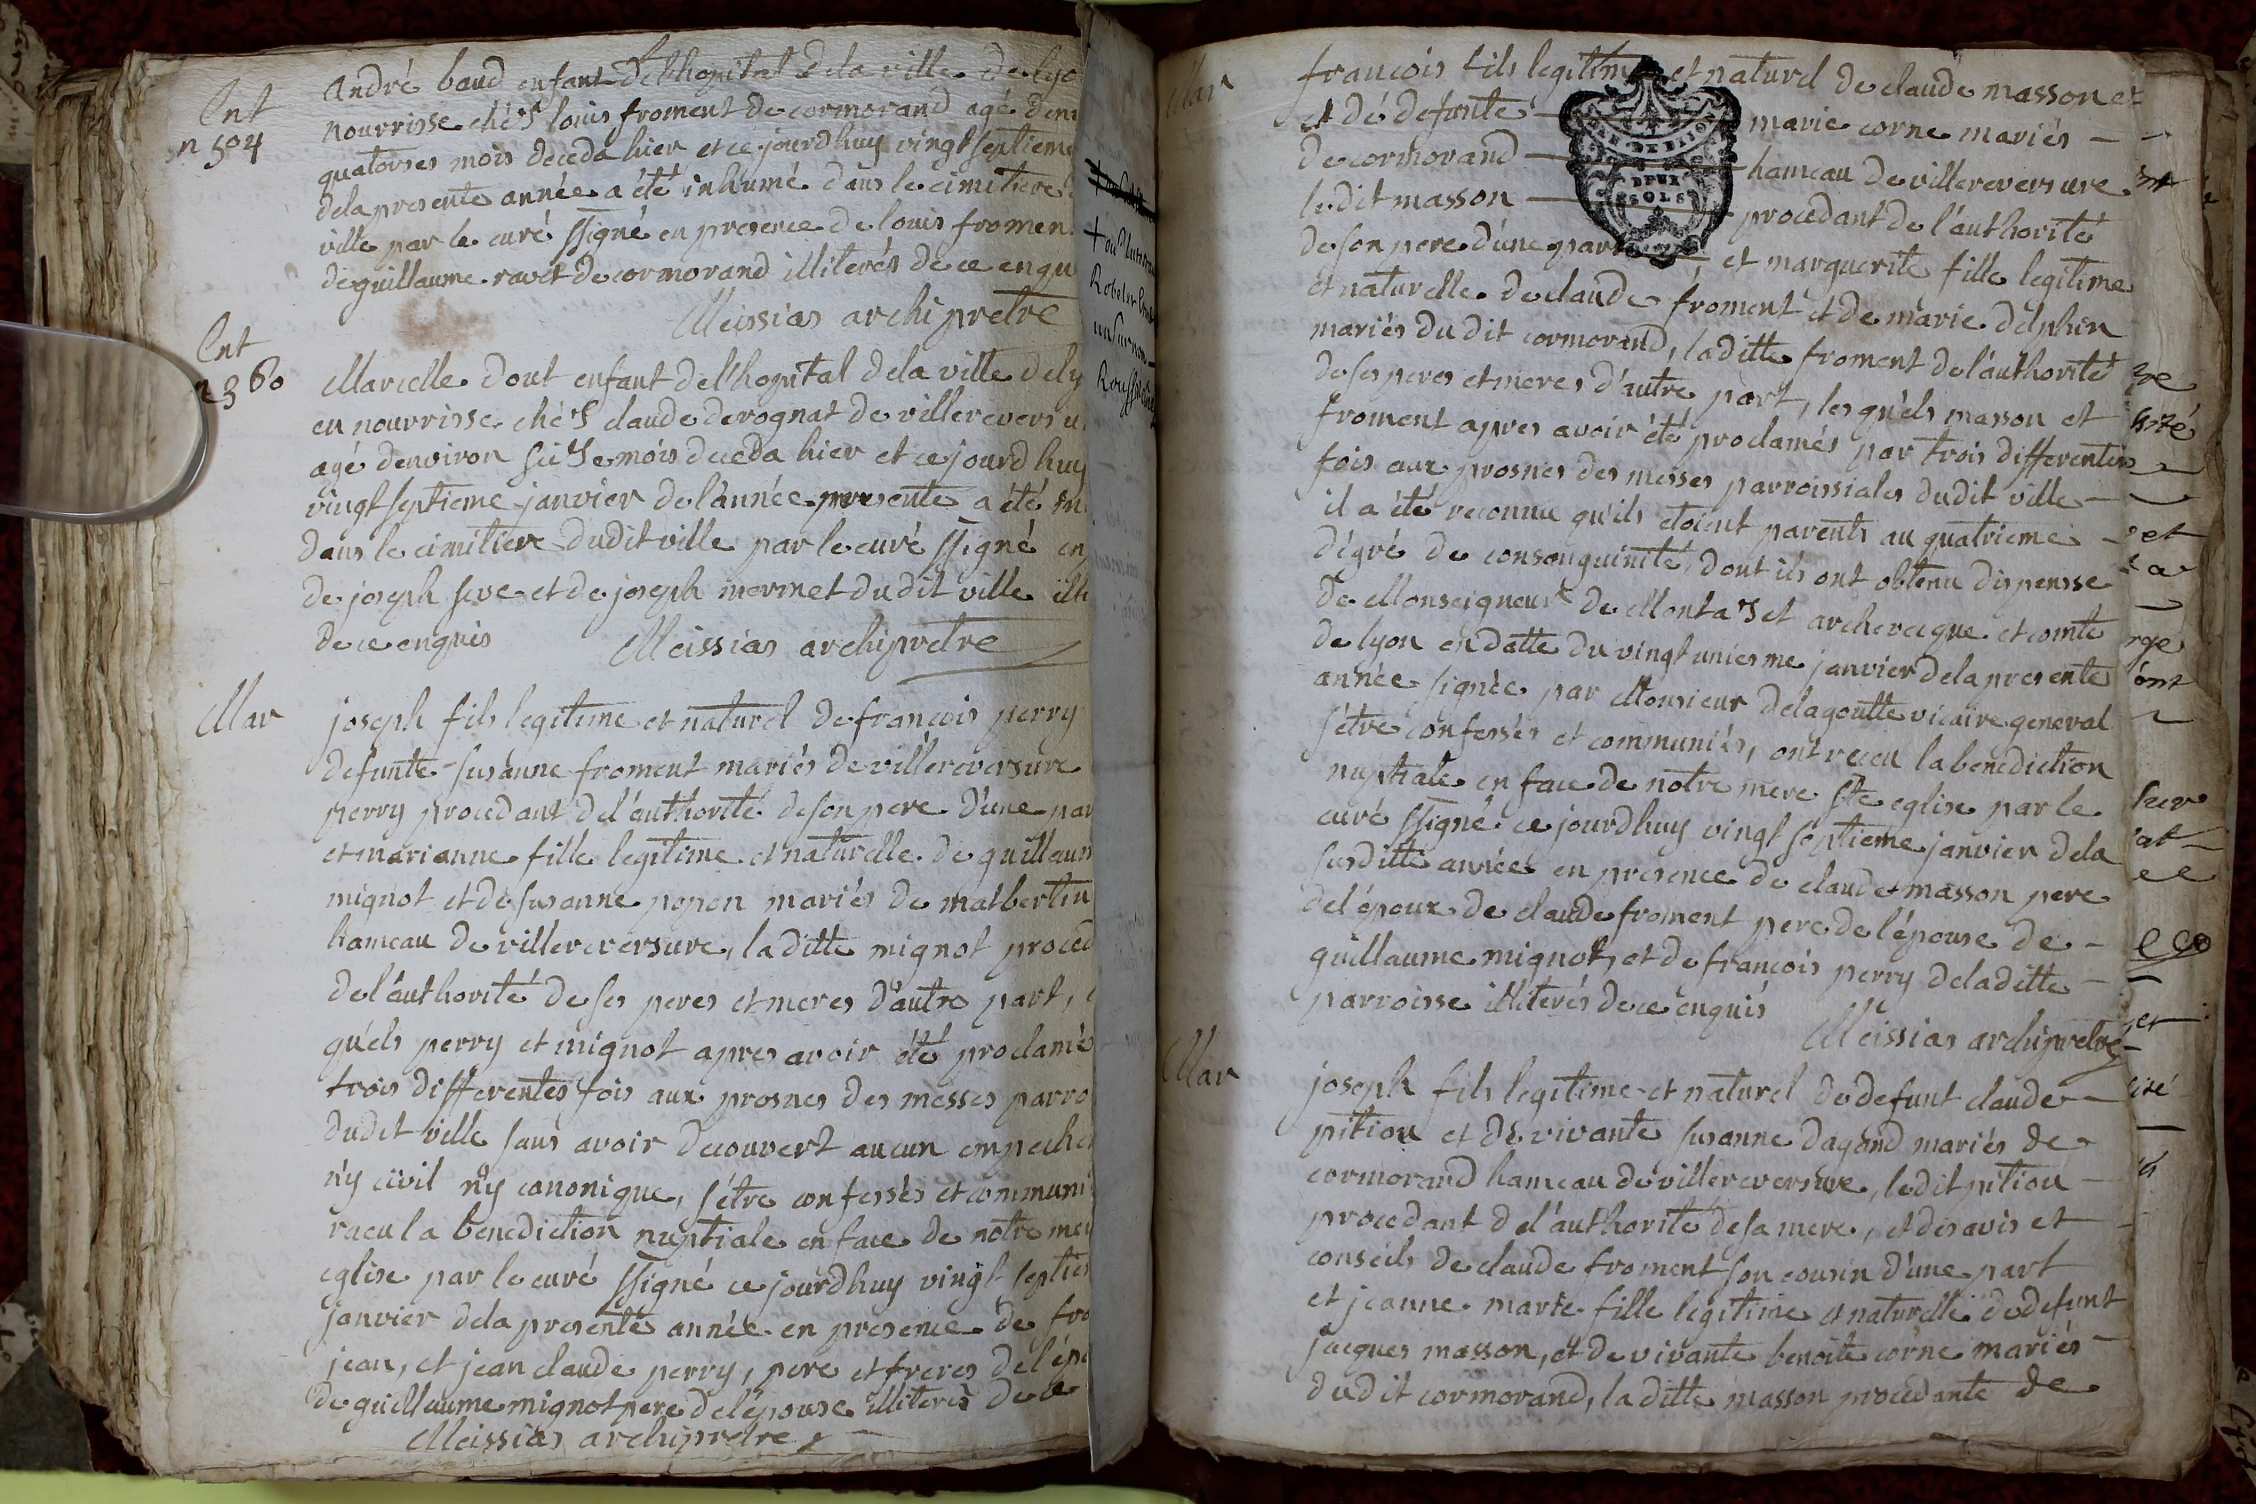 Ent
n 504
andré baud enfant de l'hopital de la ville de lyo
nourrisse ché's louis froment de cormorand agé d'env
quatorses mois deceda hier et ce jourd'huy vingt septieme
de la presente année a été inhumé dans le cimitiere
ville par le curé ssigné en presence de louis fromen
de guillaume ravet de cormorand illiterés de ce enqu
Meissias archiprêtre
Ent
n 360
Marcelle dout enfant de l'hopital de la ville de ly
en nourrisse ché's claude derognat de villereversu
agé d'environ seise mois deceda hier et ce jourd'huy
vingt septieme janvier de l'année presente a été in
dans le cimitiere du dit ville par le curé ssigné en
de joseph seve et de joseph mermet du dit ville illi
de ce enquis Meissias archiprêtre
Mar
joseph fils legitime et naturel de francois perry
defunte susanne froment mariés de villereversure
perry procedant de l'authorité de son pere d'une par
et marianne fille legitime et naturelle de guillaum
mignot et de susanne popon mariés de matbertin
hameau de villereversure, la ditte mignot proced
de l'authorité de ses peres et meres d'autre part,
qu'els perry et mignot apres avoir été proclamé
trois differentes fois aux prosnes des messes parro
du dit ville sans avoir decouvert aucun empeche
n'y civil n'y canonique, s'étre confessés et communi
racu la benediction nuptiale en face de notre mer
eglise par le curé ssigné ce jourd'huy vingt septie
janvier de la presente année en presence de fra
jean, et jean claude perry, pere et freres de l'épo
de guillaume mignot pere de l'épouse illiterés de ce
Meissias archiprêtre
un surnom
Mar
francois fils legitime et naturel de claude masson et
et de defunte marie corne mariés
de cormorand hameau de villereversure
le dit masson procedant de l'authorité
de son pere d'une part et marguerite fille legitime
et naturelle de claude froment et de marie delphin
mariés du dit cormorand, la ditte froment de l'authorité
de ses peres et meres d'autre part, les qu'els masson et
froment apres avoir été proclamés par trois differentes
fois aux prosnes des messes parroissiales du dit ville
il a été reconnu qu'ils étoient parents au quatrieme
dégré de consanguinité, dont ils ont obtenu dispensse
de Monseigneur de Montaset archeveque et comte
de lyon en datte du vingt uniesme janvier de la presente
année signée par Monsieur de lagoutte vicaire general
s'étre confessés et communiés, ont receu la benediction
nuptiale en face de notre mere ste eglise par le
curé ssigné ce jourd'huy vingt septieme janvier de la
susditte année en presence de claude masson pere
de l'époux de claude froment pere de l'épouse de
guillaume mignot, et de francois perry de la ditte
parroisse illiterés de ce enquis
Meissias archiprêtre
Mar
joseph fils legitime et naturel de defunt claude
pitiou et de vivante susanne dagand mariés de
cormorand hameau de villereversure, le dit pitiou
procedant de l'authorité de sa mere, et des avis et
conseils de claude froment son cousin d'une part
et jeanne marie fille legitime et naturelle de defunt
jacques masson, et de vivante benoite corne mariés
du dit cormorand, la ditte masson procedante de
DEUX
SOLS